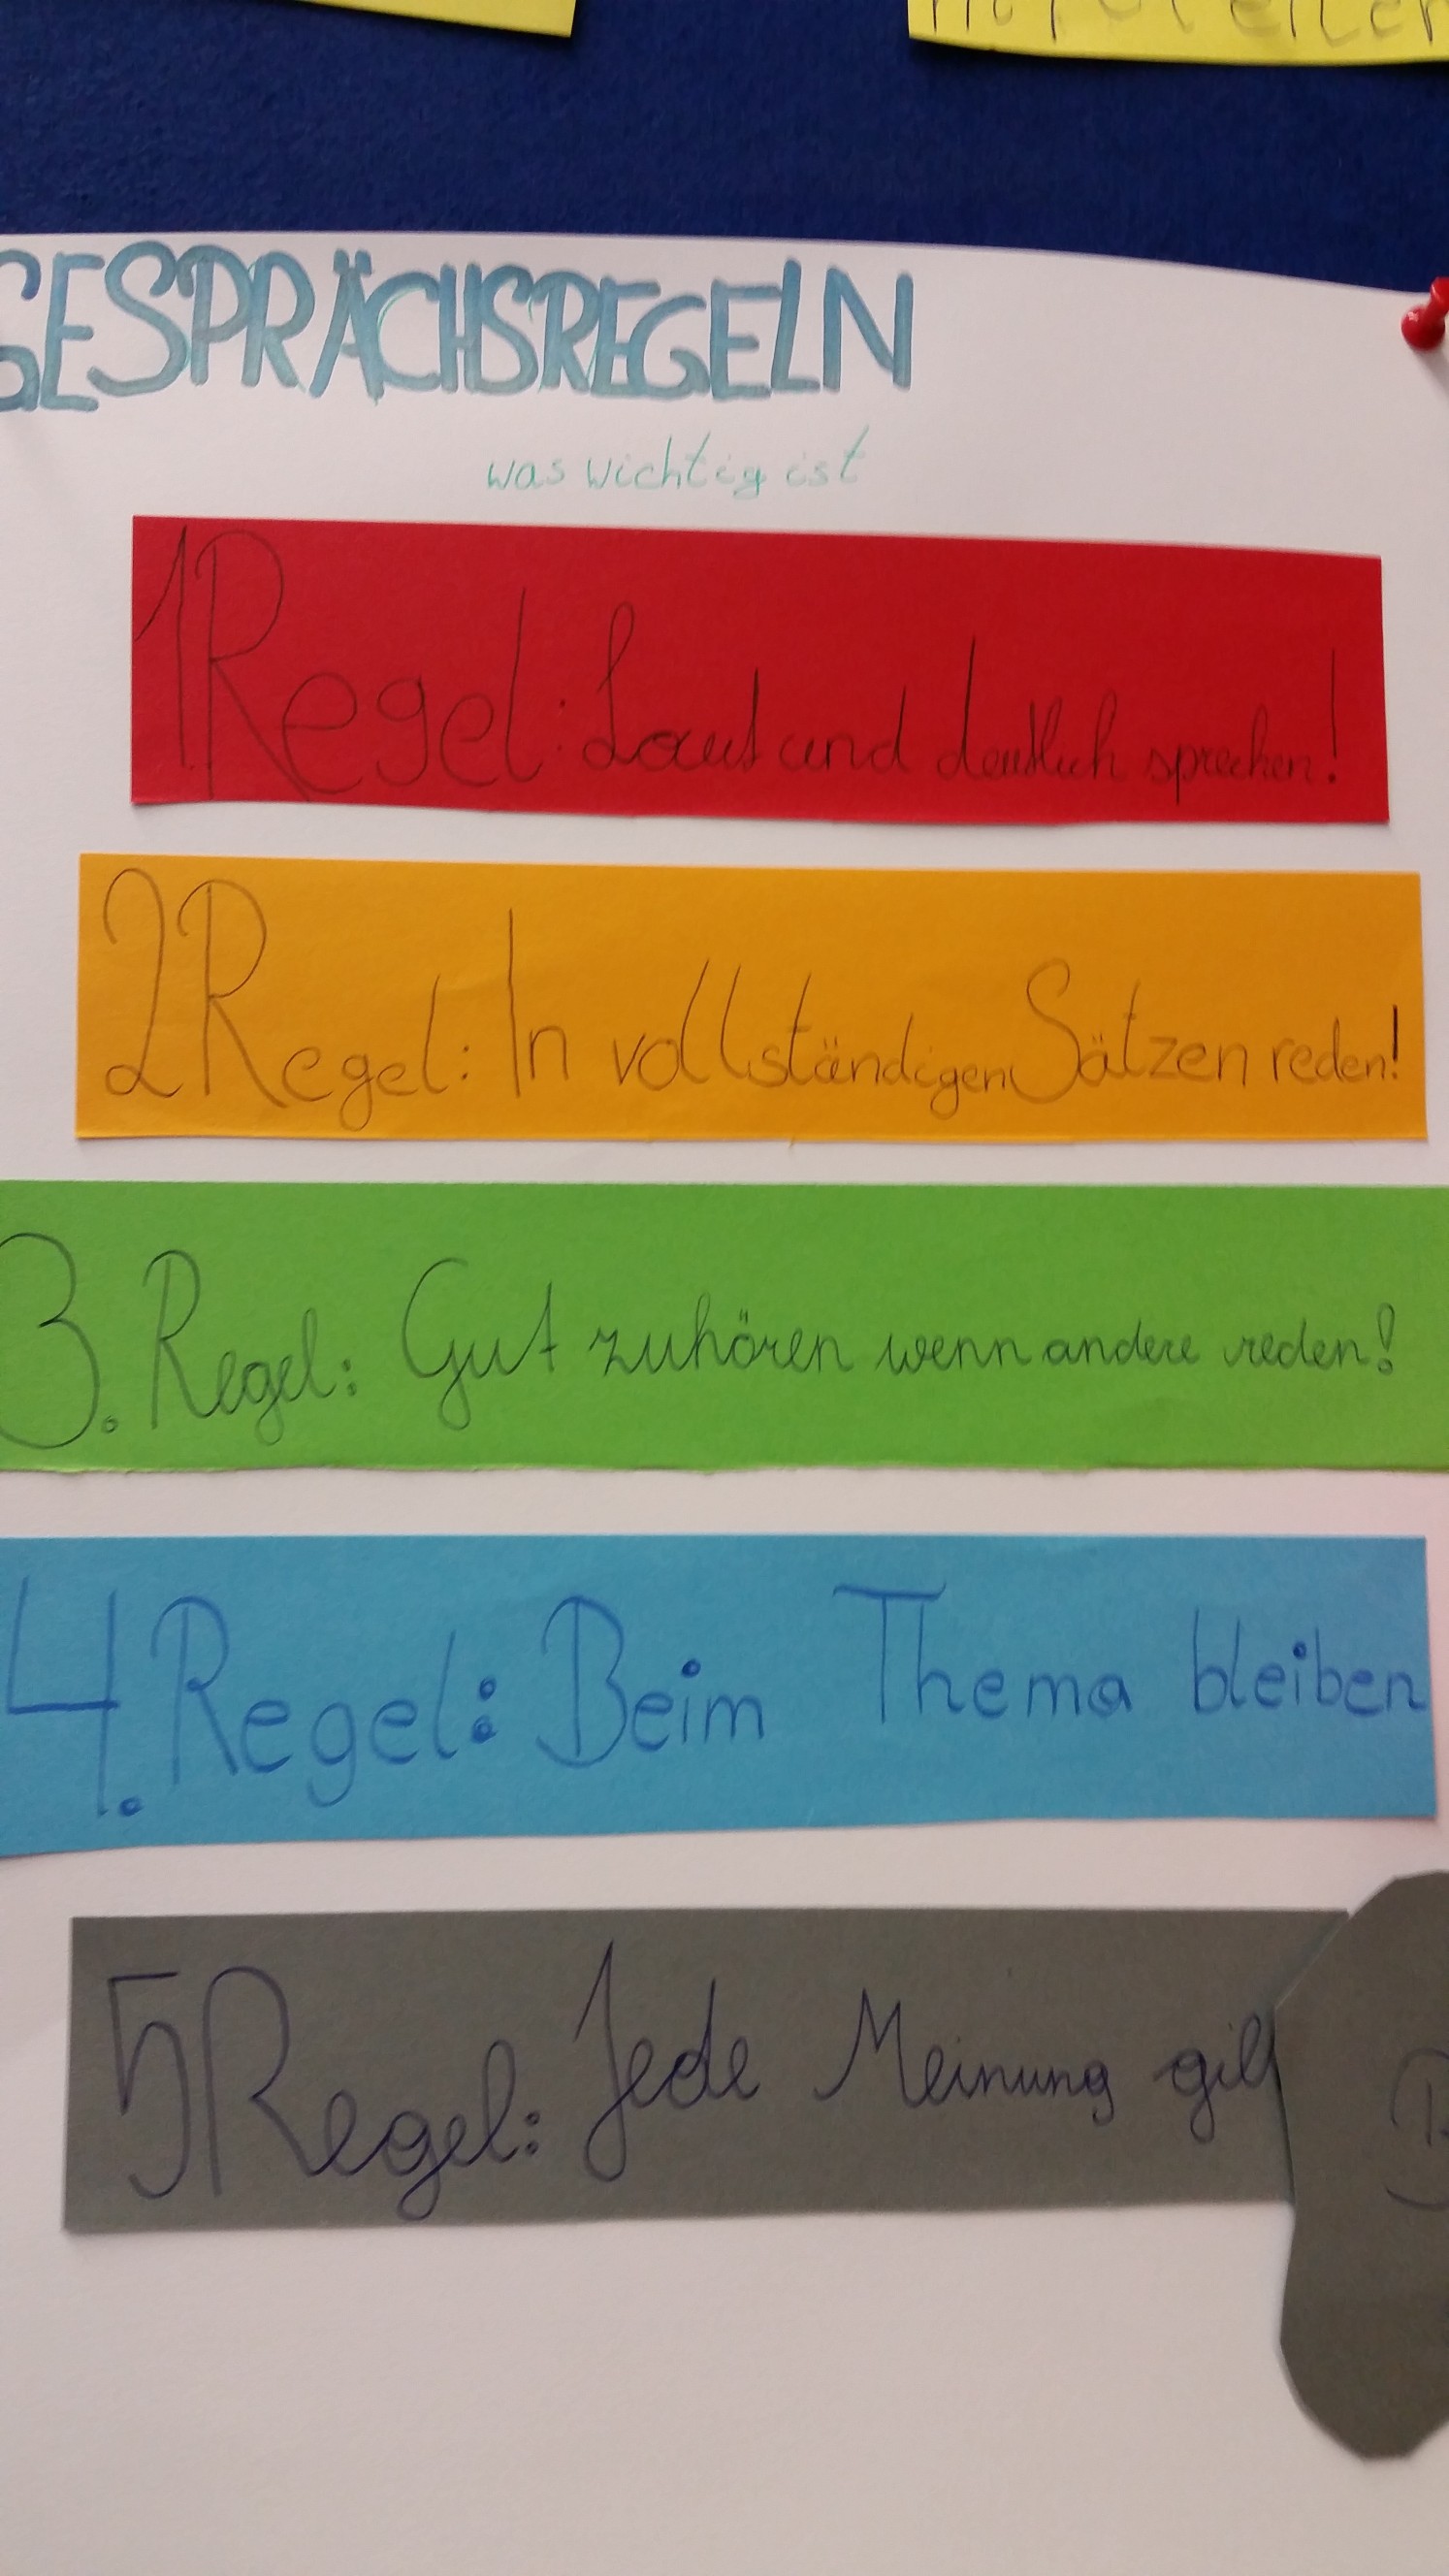 GESPRÄCHSREGELN
was wichtig ist
1Regel: Laut und deutlich sprechen!
2Regel: In vollständigen Sätzen reden!
3. Regel: Gut zuhören wenn andere reden!
4. Regel: Beim Thema bleiben
5Regel: Jede Meinung gilt